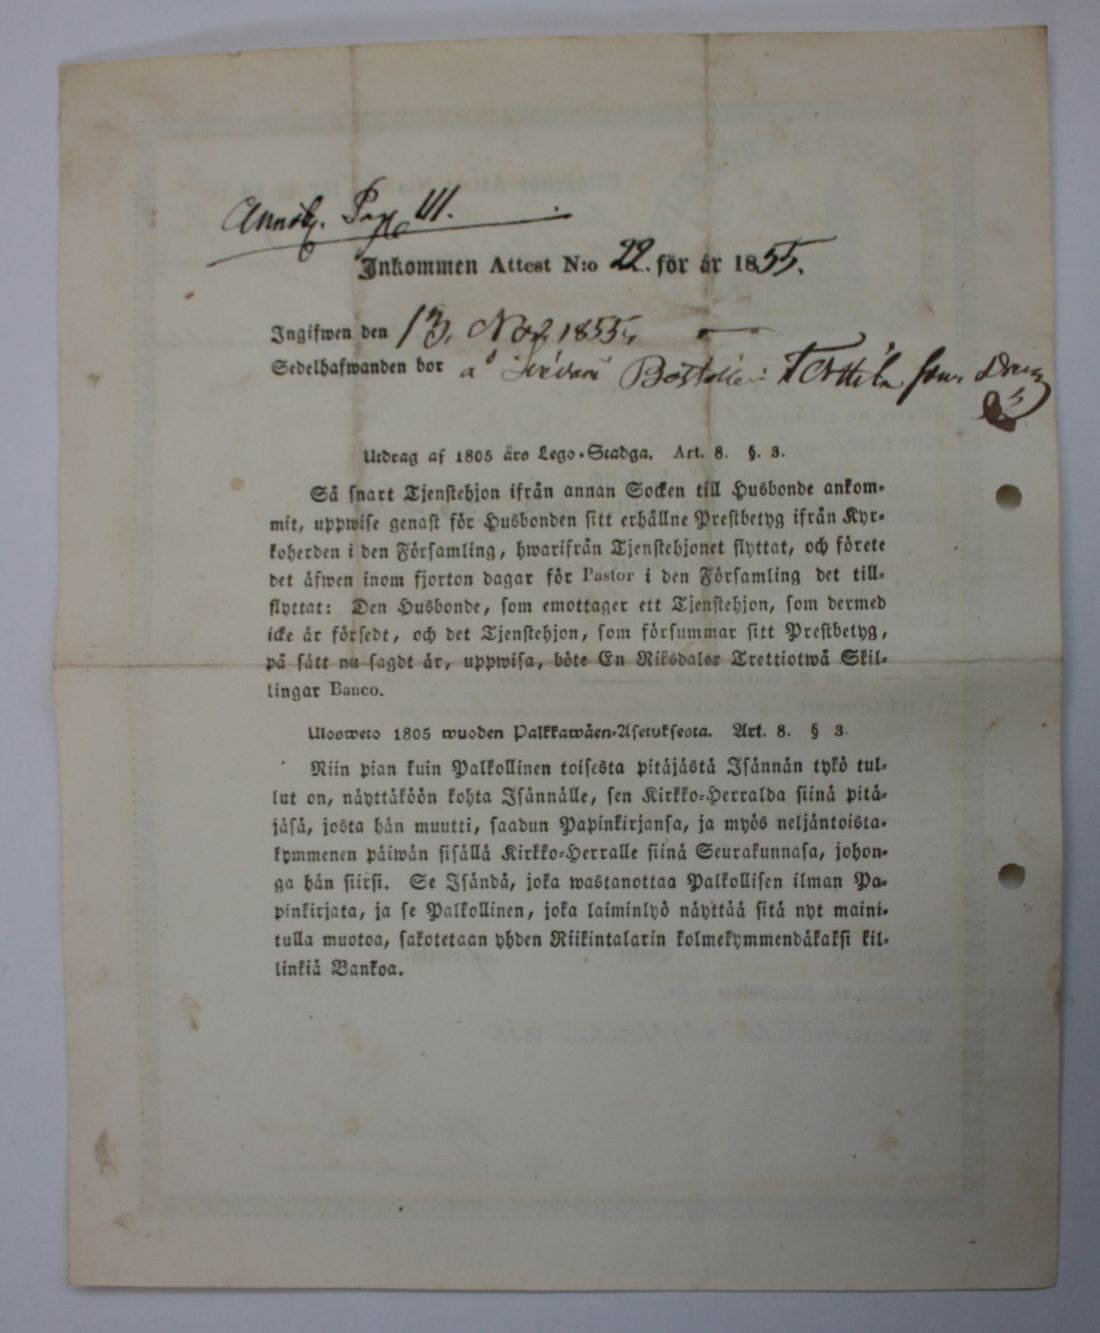 Annot. Pag. 111.
Inkommen Attest N:o 22. för år 1855.
Ingifwen den 13. Nov. 1855.
Sedelhafwanden bor å Boställe: Terttilä som Dreng
Utdrag af 1805 års Lego-Stadga. Art. 8. §. 3.
Så snart Tjenstehjon ifrån annan Socken till Husbonde ankom-
mit, uppwise genast för Husbonden sitt erhållne Prestbetyg ifrån Kyr-
koherden i den Församling, hwarifrån Tjenstehjonet flyttat, och förete
det äfwen inom fjorton dagar för Pastor i den Församling det till-
flyttat: Den Husbonde, som emottager ett Tjenstehjon, som dermed
icke är försedt, och det Tjenstehjon, som försummar sitt Prestbetyg,
på sätt nu sagdt är, uppwisa, böte En Riksdaler Trettiotwå Skil-
lingar Banco.
Ulosweto 1805 wuoden Palkkawäen-Asetuksesta. Art. 8. § 3.
Niin pian kuin Palkollinen toisesta pitäjästä Isännän tykö tul-
lut on, näyttäköön kohta Isännälle, sen Kirkko-Herralda siinä pitä-
jäsä, josta hän muutti, saadun Papinkirjansa, ja myös neljäntoista-
kymmenen päiwän sisällä Kirkko-Herralle siinä Seurakunnasa, johon-
ga hän siirsi. Se Isändä, joka wastanottaa Palkollisen ilman Pa-
pinkirjata, ja se Palkollinen, joka laiminlyö näyttää sitä nyt maini-
tulla muotoa, sakotetaan yhden Riikintalarin kolmekymmendäkaksi kil-
linkiä Bankoa.